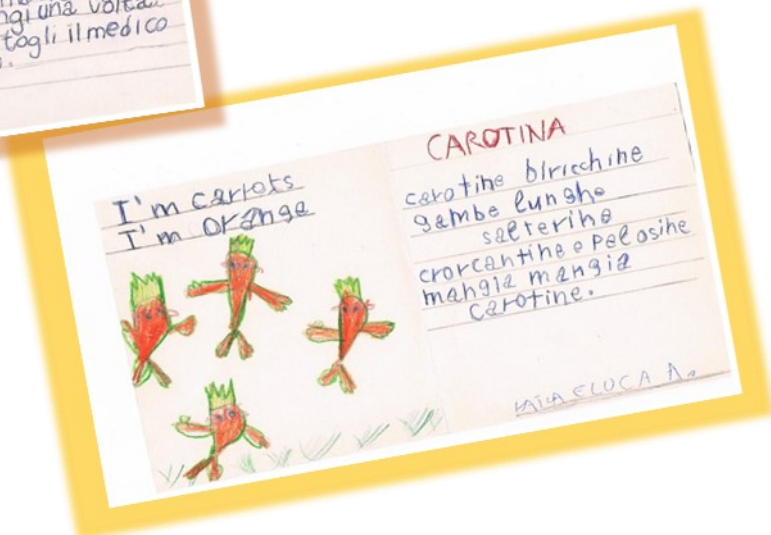 ngi una volta
togli il medico
I'm carrots
I'm orange
CAROTINA
carotine biricchine
gambe lunghe
salterine
crorcantine e pelosine
mangia mangia
carotine.
LAILA E LUCA A.